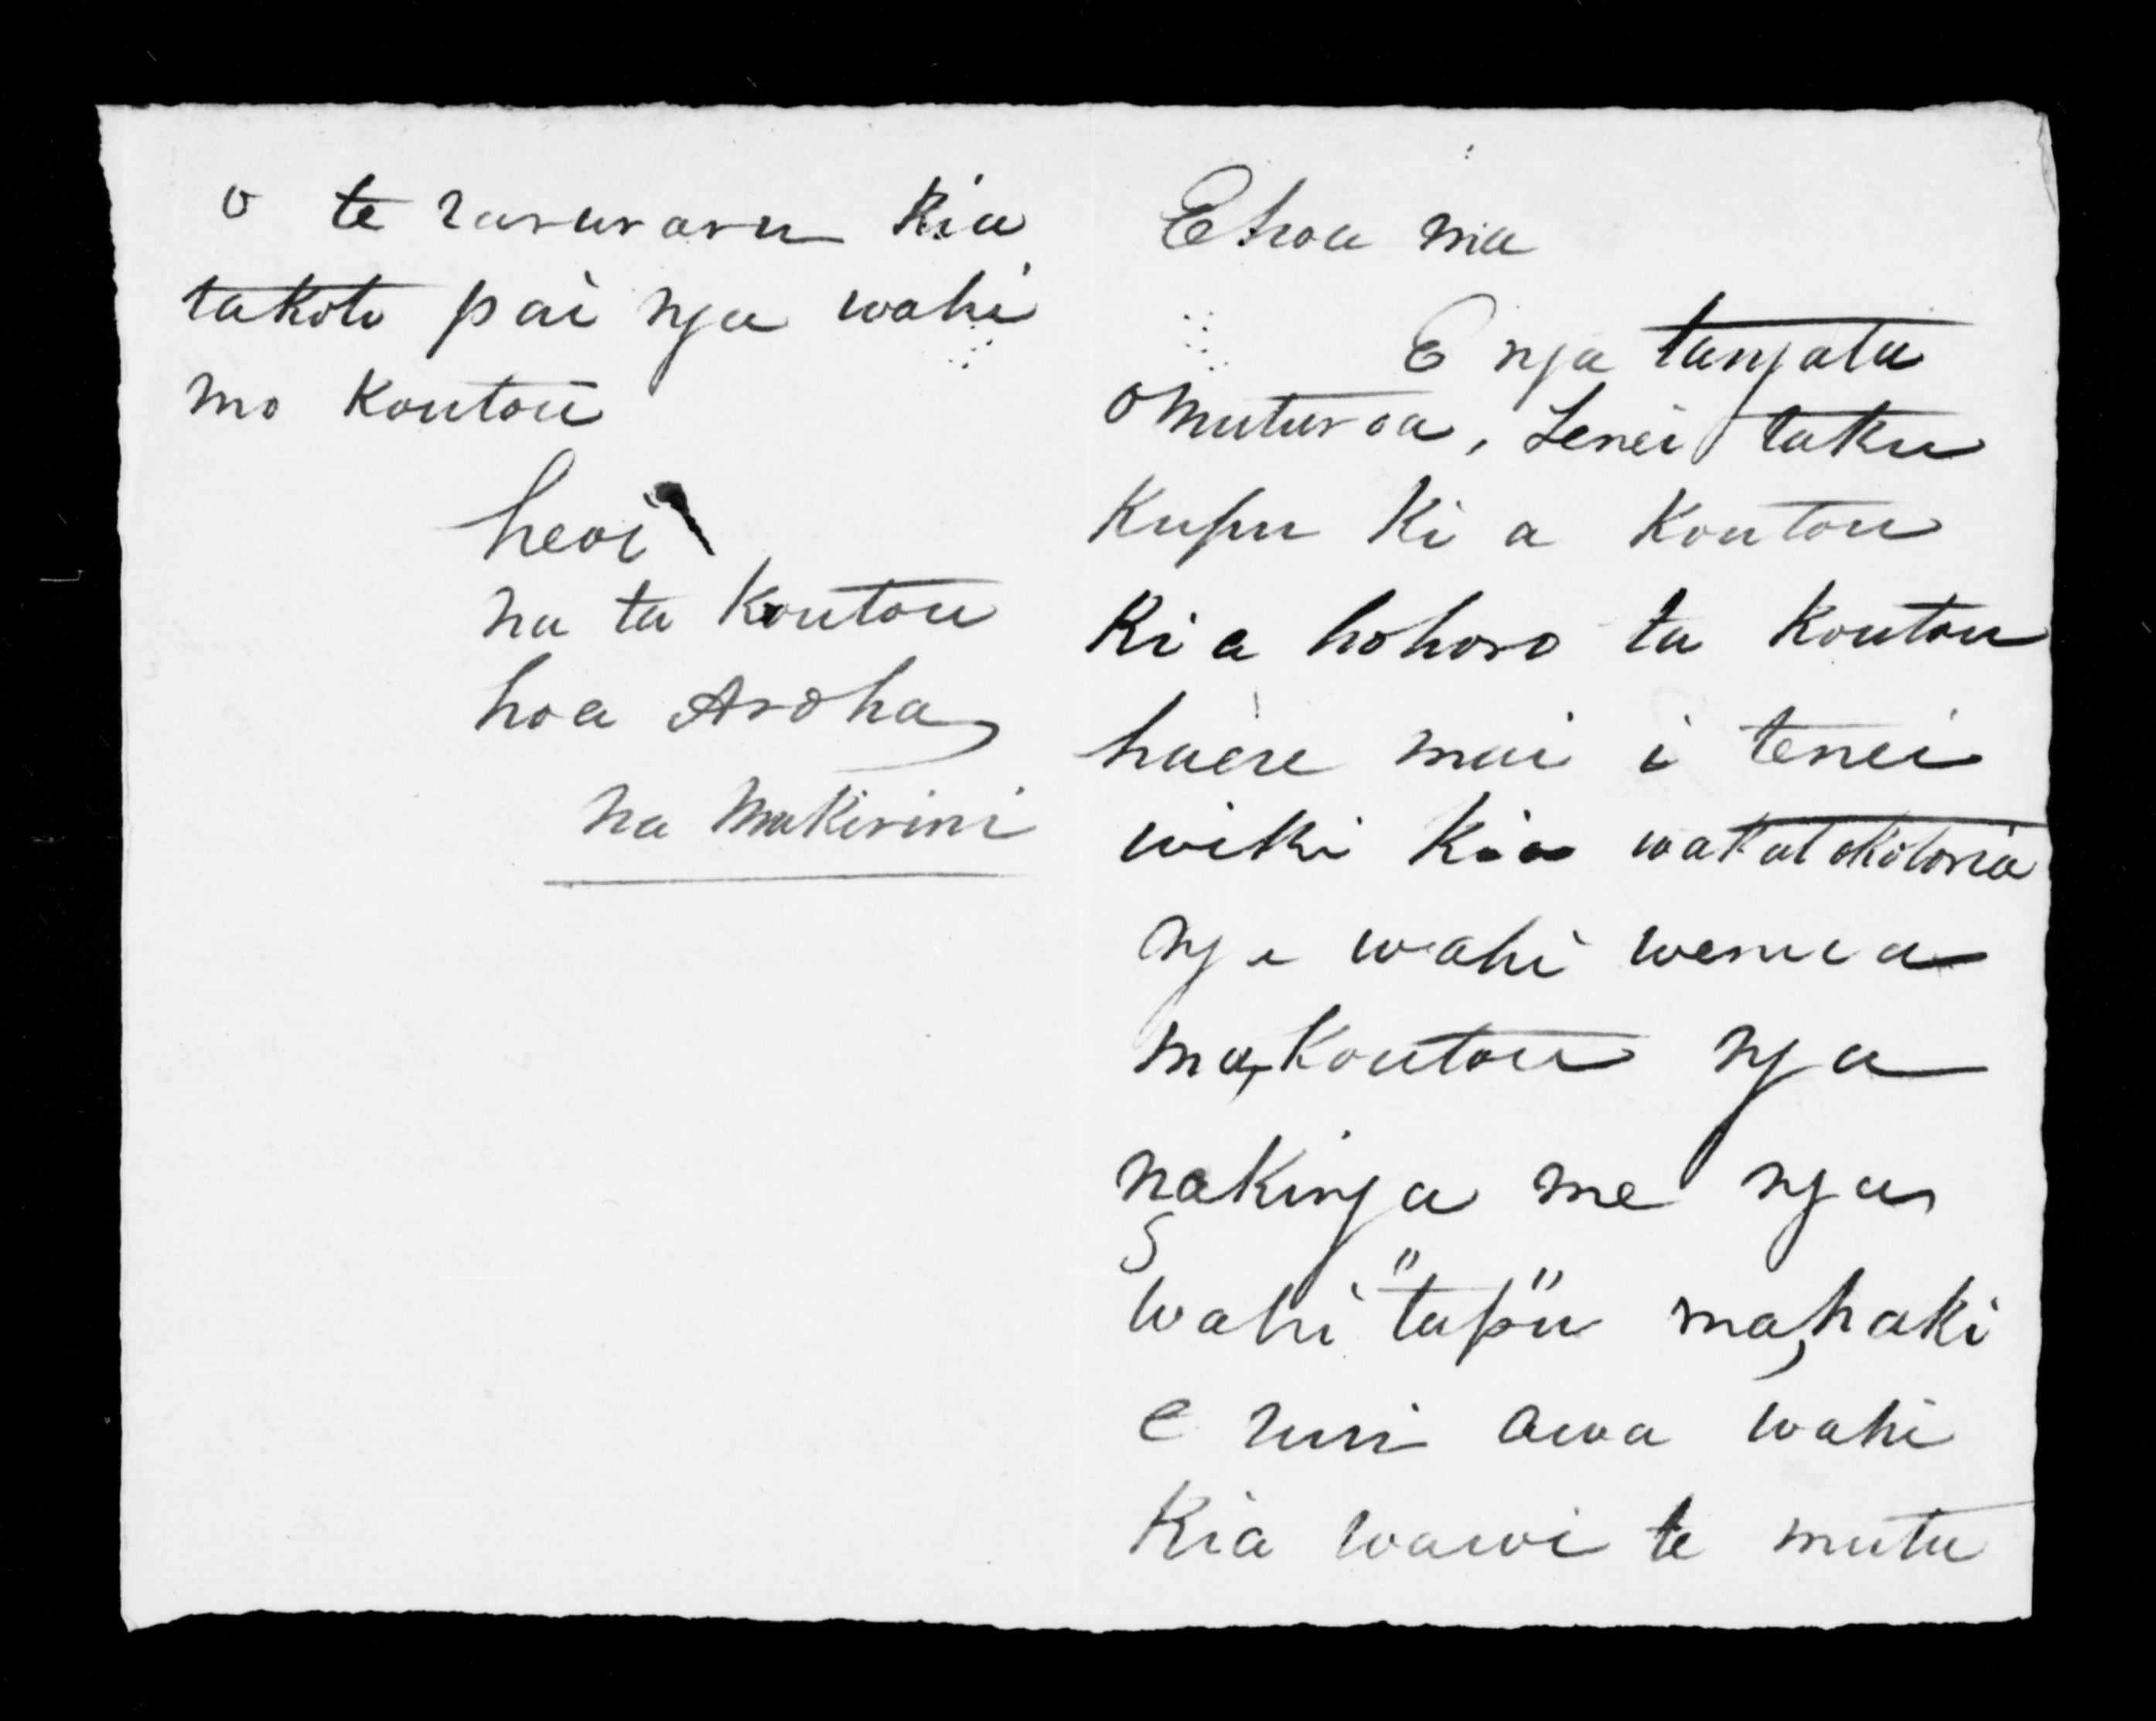 E hoa ma
E nga tangata
o Muturoa, Tenei taku
Kupu Ki a Koutou
Kia hohoro ta Koutou
haere mai i tenei
wiki Kia wakatakotoria
nga wahi wenua
ma, Koutou nga
nakinga me nga
wahi "tapu" ma, haki
e runi awa wahi
Kia wawi te mutu
o te raruraru Kia
takoto pai nga wahi
mo Koutou
heoi
na ta Koutou
hoa Aroha
na Makirini